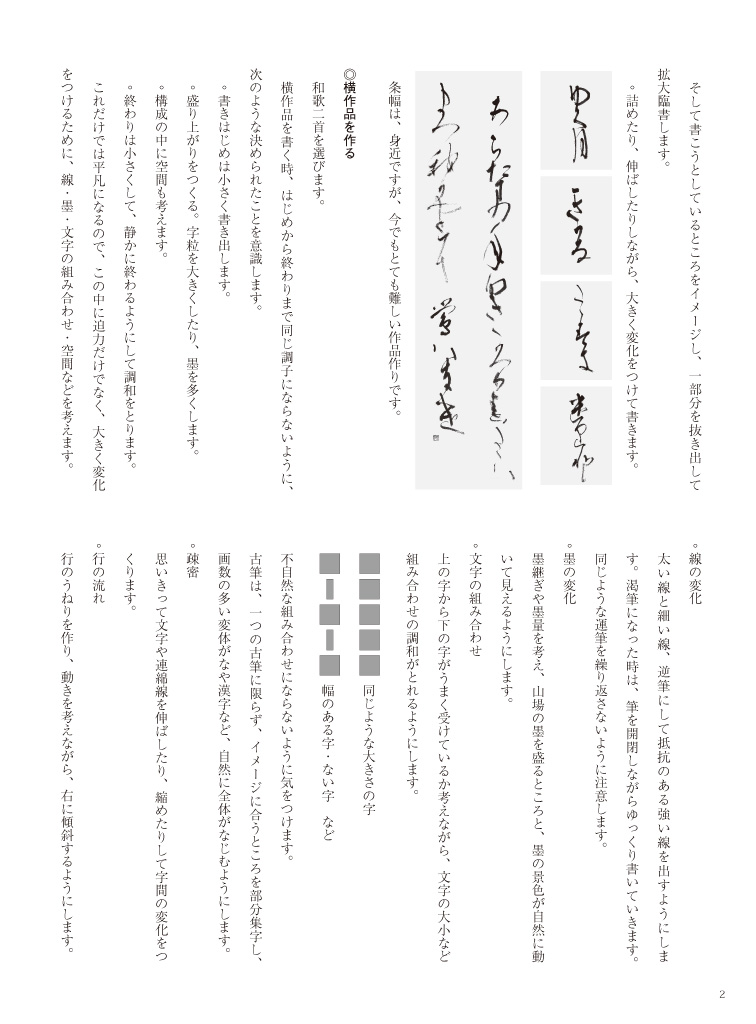 そして書こうとしているところをイメージし、一部分を抜き出して
拡大臨書します。
◦詰めたり、伸ばしたりしながら、大きく変化をつけて書きます。
条幅は、身近ですが、今でもとても難しい作品作りです。
◎横作品を作る
和歌二首を選びます。
横作品を書く時、はじめから終わりまで同じ調子にならないように、
次のような決められたことを意識します。
◦書きはじめは小さく書き出します。
◦盛り上がりをつくる。字粒を大きくしたり、墨を多くします。
◦構成の中に空間も考えます。
◦終わりは小さくして、静かに終わるようにして調和をとります。
これだけでは平凡になるので、この中に迫力だけでなく、大きく変化
をつけるために、線・墨・文字の組み合わせ・空間などを考えます。
◦線の変化
太い線と細い線、逆筆にして抵抗のある強い線を出すようにしま
す。渇筆になった時は、筆を開閉しながらゆっくり書いていきます。
同じような運筆を繰り返さないように注意します。
◦墨の変化
墨継ぎや墨量を考え、山場の墨を盛るところと、墨の景色が自然に動
いて見えるようにします。
◦文字の組み合わせ
上の字から下の字がうまく受けているか考えながら、文字の大小など
組み合わせの調和がとれるようにします。
同じような大きさの字
幅のある字・ない字　など
不自然な組み合わせにならないように気をつけます。
古筆は、一つの古筆に限らず、イメージに合うところを部分集字し、
画数の多い変体がなや漢字など、自然に全体がなじむようにします。
◦疎密
思いきって文字や連綿線を伸ばしたり、縮めたりして字間の変化をつ
くります。
◦行の流れ
行のうねりを作り、動きを考えながら、右に傾斜するようにします。
2